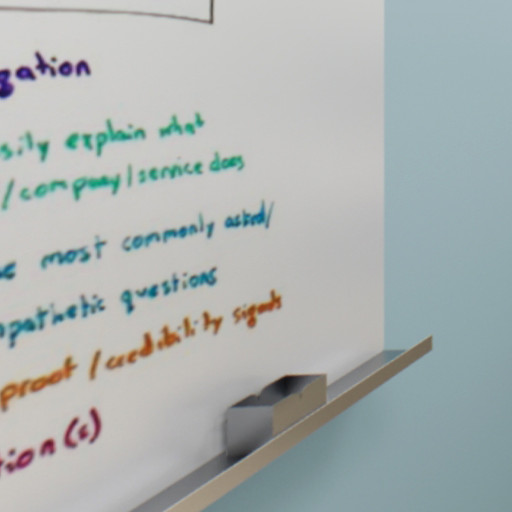 gation
sily explain what
/company/service does
e most commonly asked/
pathetic questions
proof/credibility signals
tion(s)